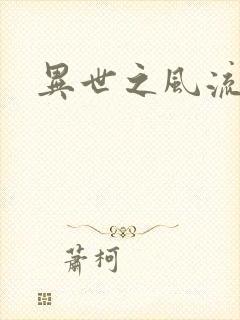 異世之風流
蕭柯